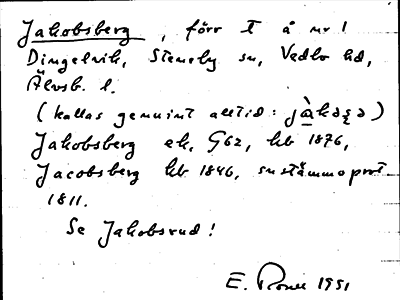 Jakobsberg, förr t å nr 1
Dingelvik, Steneby sn, Vedbo hd,
Älvsb. l.
(kallas genuint alltid: jàkəʂə)
Jakobsberg ek. G62, hb 1876,
Jacobsberg hb 1846, sustämmoprot.
1811.
Se Jakobsrud!
E. 1951